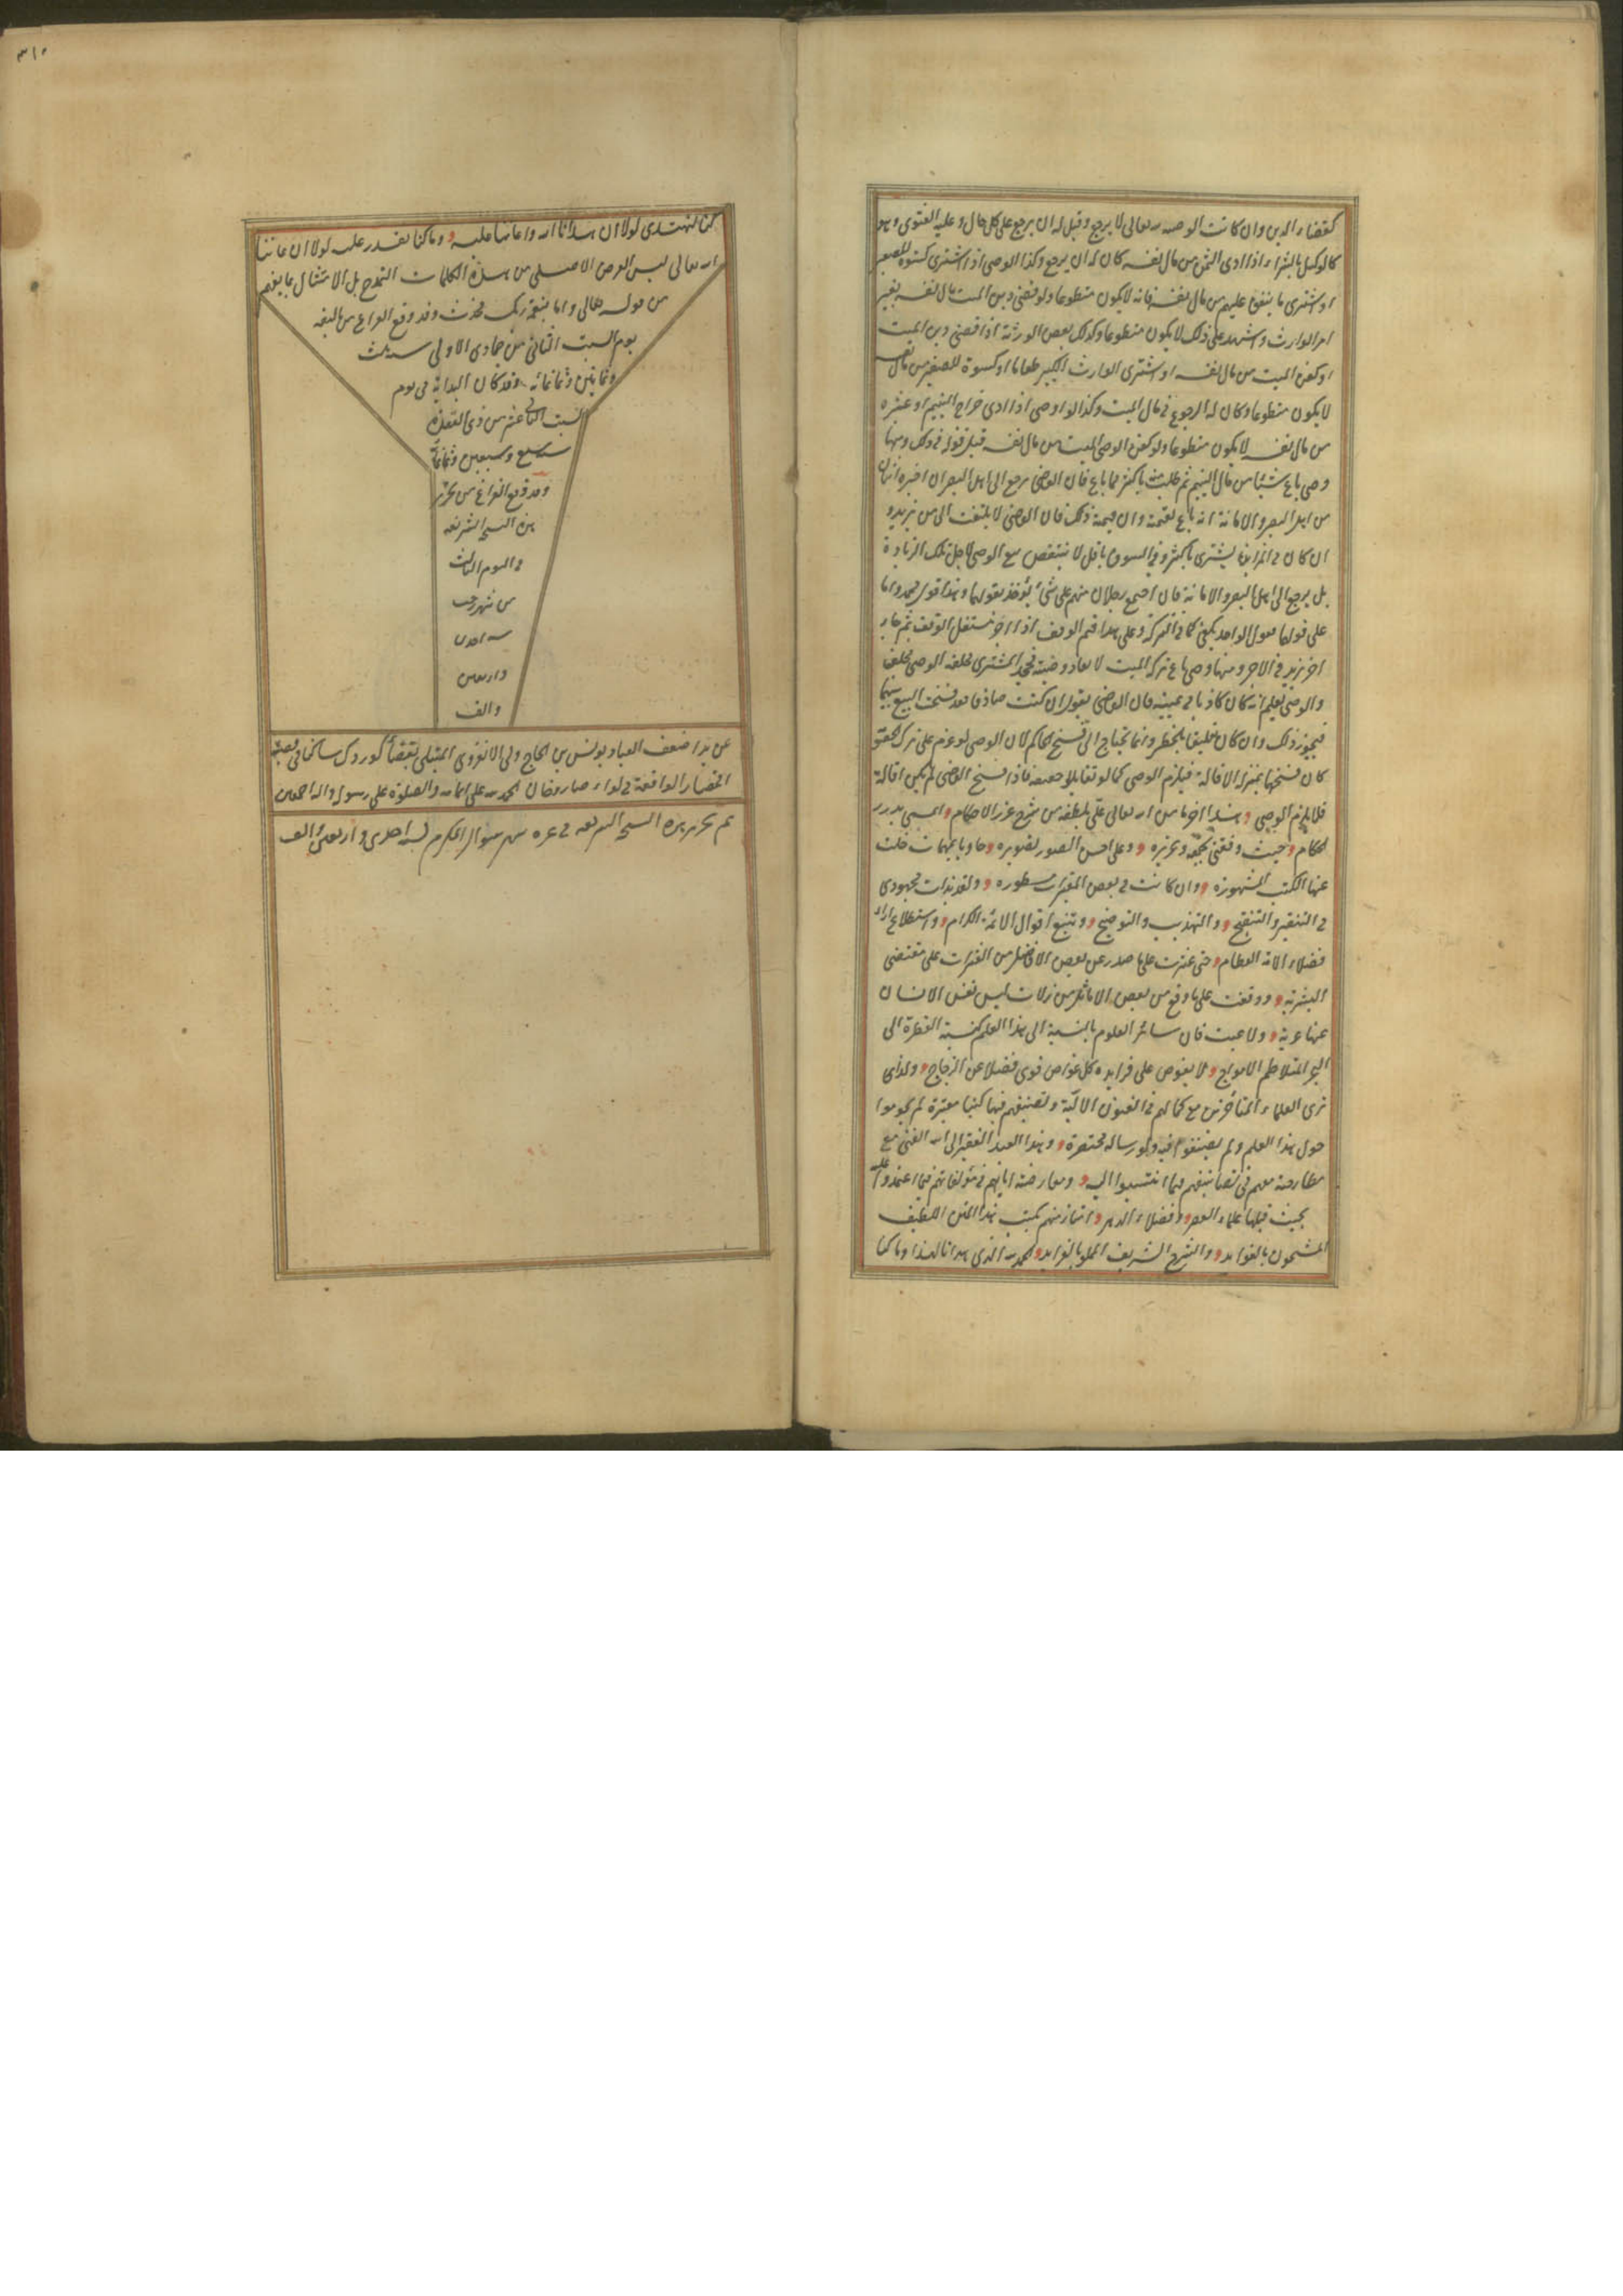 كقضاء الدين وان كانت الوصية لله تعالى لا يرجع وقيل له ان يرجع على كل حال وعليه الفتوى وهو
كالوكيل بالشراء اذا ادى الثمن من مال نفسه كان له ان يرجع وكذا الوصى اذا اشترى كسوة للصغير
او اشترى ما ينفق عليهم من مال نفسه فانه لا يكون متطوعا ولو قضى دين الميت بمال نفسه بغير
امر الوارث واشهد على ذلك لا يكون متطوعا وكذلك بعض الورثة اذا قضى دين الميت
او كفن الميت من مال نفسه او اشترى الوارث الكبير طعاما او كسوة للصغير من مال نفسه
لا يكون متطوعا وكان له الرجوع فى مال الميت وكذا الوصى اذا ادى خراج اليتيم او عشره
من مال نفسه لا يكون متطوعا ولو كفن الوصى الميت من مال نفسه قبل قوله فى ذلك ومنها
وصى باع شيئا من مال اليتيم ثم طلب منه باكثر مما باع فان القاضى يرجع الى اهل البصر ان اخبره اثنان
من اهل البصر والامانة انه باع بقيمته وان قيمته ذلك فان القاضى لا يلتفت الى من يزيد و
ان كان فى المزايدة يشترى باكثر وفى السوق باقل لا ينتقض بيع الوصى لاجل تلك الزيادة
بل يرجع الى اهل البصر والامانة فان اجتمع رجلان منهم على شئ يؤخذ بقولهما وهذا قول محمد واما
على قولهما قول الواحد يكفى كما فى التزكية وعلى هذا قيم الوقف اذا آجر مستغل الوقف ثم جاء
آخر يزيد فى الاجر ومنها وصى باع تركة الميت لانفاذ وصيته فجحد المشترى فحلفه الوصى فحلف
والوصى يعلم انه كان كاذبا فى يمينه فان القاضى يقول ان كنت صادقا فقد فسخت البيع بينكما
فيجوز ذلك وان كان تعليقا بالخطر وانما يحتاج الى فسخ الحاكم لان الوصى لو عزم على ترك الخصومة
كان فسخها بمنزلة الاقالة فيلزم الوصى كما لو تقايلا حقيقة فاذا فسخ القاضى لم يكن اقالة
فلا يلزم الوصى هذا آخر ما من الله تعالى على بلطفه من شرح غرر الاحكام المسمى بدرر
الحكام حيث وفقنى لجمعه وتحريره وعلى احسن الصور تصويره حاويا لمهمات خلت
عنها الكتب المشهورة وان كانت فى بعض المعتبرات مسطورة ولقد بذلت مجهودى
فى التنقير والتنقيح والتهذيب والتوضيح وتتبع اقوال الائمة الكرام واستطلاع آراء
فضلاء الانام العظام حتى عثرت على ما صدر عن بعض الافاضل من العثرات على مقتضى
البشرية ووقفت على ما وقع من بعض الاماثل من زلات ليس نفس الانسان
عنها عرية ولا عجب فان سائر العلوم بالنسبة الى هذا العلم كنسبة القطرة الى
البحر المتلاطم الامواج لا يغوص على فرايده كل غواص قوى فضلا عن الزجاج ولذا
ترى العلماء المتأخرين مع كمالهم فى الفنون الالية وتصنيفهم فيها كتبا معتبرة لم يحوموا
حول هذا العلم ولم يصنفوا فيه ولو رسالة مختصرة وهذا العبد الفقير الى الله الغنى مع
معارضته معهم فى تصانيفهم فيما انتسبوا اليه ومعارضته اياهم فى مؤلفاتهم فيما اعتمدوا عليه
بحيث قبلها علماء العصر وفضلاء الدهر امتاز منهم بكتب هذا المتن اللطيف
المشحون بالفوايد والشرح الشريف المملو بالفرايد الحمد لله الذى هدانا لهذا وما كنا
٣١٠
كنا لنهتدى لولا ان هدانا الله واعاننا عليه وما كنا نقدر عليه لولا ان عاننا
الله تعالى ليس الغرض الاصلى من هذه الكلمات التمدح بل الامتثال بما يفهم
من قوله تعالى واما بنعمة ربك فحدث وقد وقع الفراغ من تاليفه
يوم السبت الثانى من جمادى الاولى سنة ثلث
وثمانين وثمانمائة وقد كان البداية فى يوم
السبت الثانى عشر من ذى القعدة
سنة سبع وسبعين وثمانمائة
وقد وقع الفراغ من تحرير
هذه النسخة الشريفة
فى اليوم الثالث
من شهر رجب
سنة احدى
واربعين
والف
عن يد اضعف العباد يونس بن الحاج ولى المبتلى بقضاء كوردك ساكنا فى قصبة
الواقعة فى لواء صاروخان الحمد لله على اتمامه والصلوة على رسوله وآله اجمعين
تم تحرير هذه النسخة الشريفة فى غرة شهر شوال المكرم لسنة احدى واربعين والف